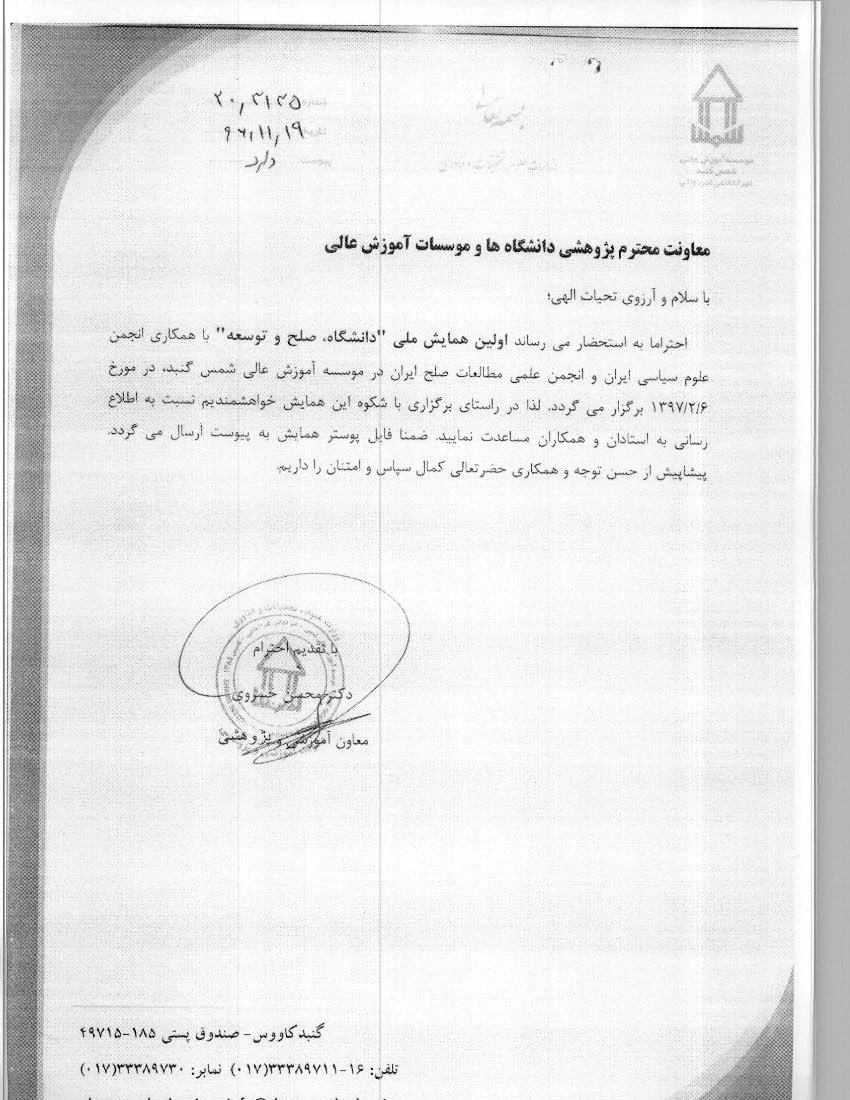 بسمه تعالی
شماره ۲۰,۳۱۴۵
تاریخ ۹۶,۱۱,۱۹
پیوست دارد
شمس
موسسه آموزش عالی
شمس گنبد
غیرانتفاعی غیردولتی
وزارت علوم، تحقیقات و فناوری
معاونت محترم پژوهشی دانشگاه ها و موسسات آموزش عالی
با سلام و آرزوی تحیات الهی؛
احتراما به استحضار می رساند اولین همایش ملی "دانشگاه، صلح و توسعه" با همکاری انجمن
علوم سیاسی ایران و انجمن علمی مطالعات صلح ایران در موسسه آموزش عالی شمس گنبد، در مورخ
۱۳۹۷/۲/۶ برگزار می گردد. لذا در راستای برگزاری با شکوه این همایش خواهشمندیم نسبت به اطلاع
رسانی به استادان و همکاران مساعدت نمایید. ضمنا فایل پوستر همایش به پیوست ارسال می گردد.
پیشاپیش از حسن توجه و همکاری حضرتعالی کمال سپاس و امتنان را داریم.
با تقدیم احترام
دکتر محسن خسروی
معاون آموزشی و پژوهشی
گنبد کاووس- صندوق پستی ۱۸۵-۴۹۷۱۵
تلفن: ۱۶-۳۳۳۸۹۷۱۱(۰۱۷) نمابر: ۳۳۳۸۹۷۳۰(۰۱۷)